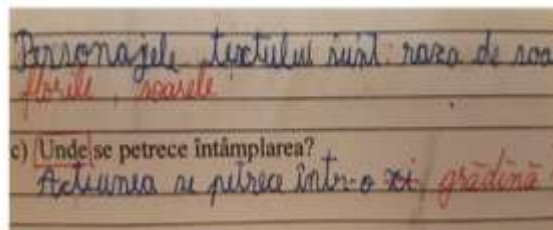 Personajele textului sunt: raza de soa
florile, soarele
c) Unde se petrece întâmplarea?
Acțiunea se petrece într-o zi grădină